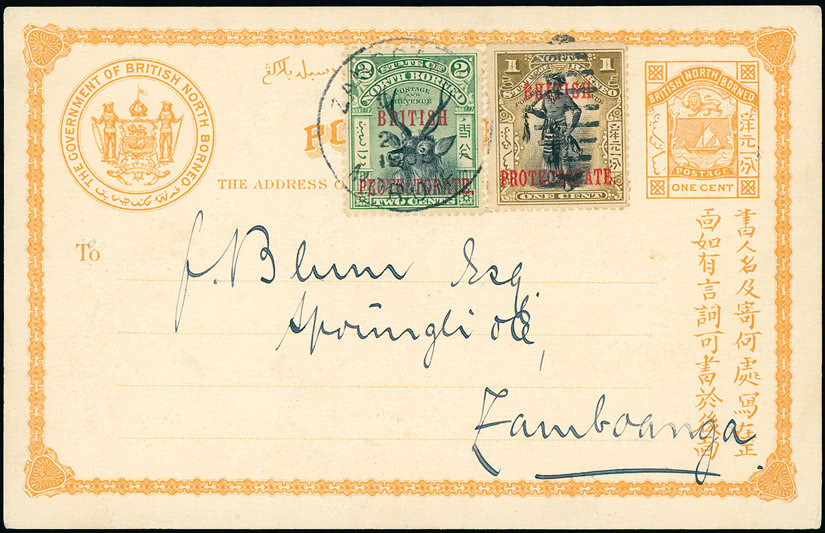 THE GOVERNMENT OF BRITISH NORTH BORNEO
2 STATE OF 2
NORTH BORNEO
POSTAGE
AND
REVENUE
BRITISH
PROTECTORATE.
TWO CENTS
1 1
NORTH
BRITISH
PROTECTORATE.
ONE CENT
BRITISH NORTH BORNEO
洋元一分
POSTAGE
ONE CENT
THE ADDRESS
To
J. Blum Esq.
Zamboanga.
書人名及寄何處寫在正
面如有言詞可書於後面